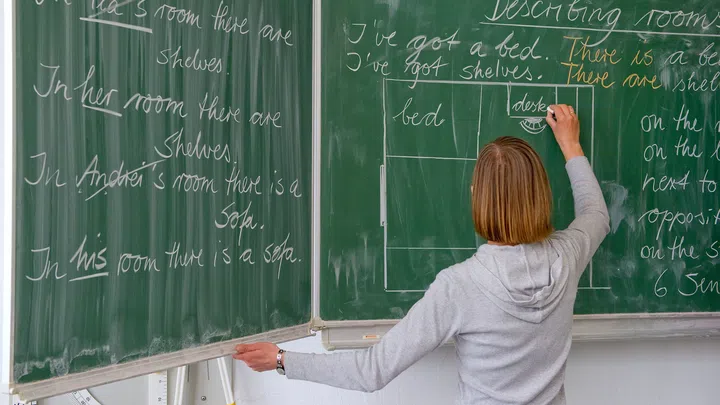 In Lea's room there are
shelves.
In her room there are
shelves.
In Andrei's room there is a
sofa.
In his room there is a sofa.
Describing room
I've got a bed. There is a be
I've got shelves. There are shel
bed
desk
on the
on the
next to
opposit
on the s
6 Sen